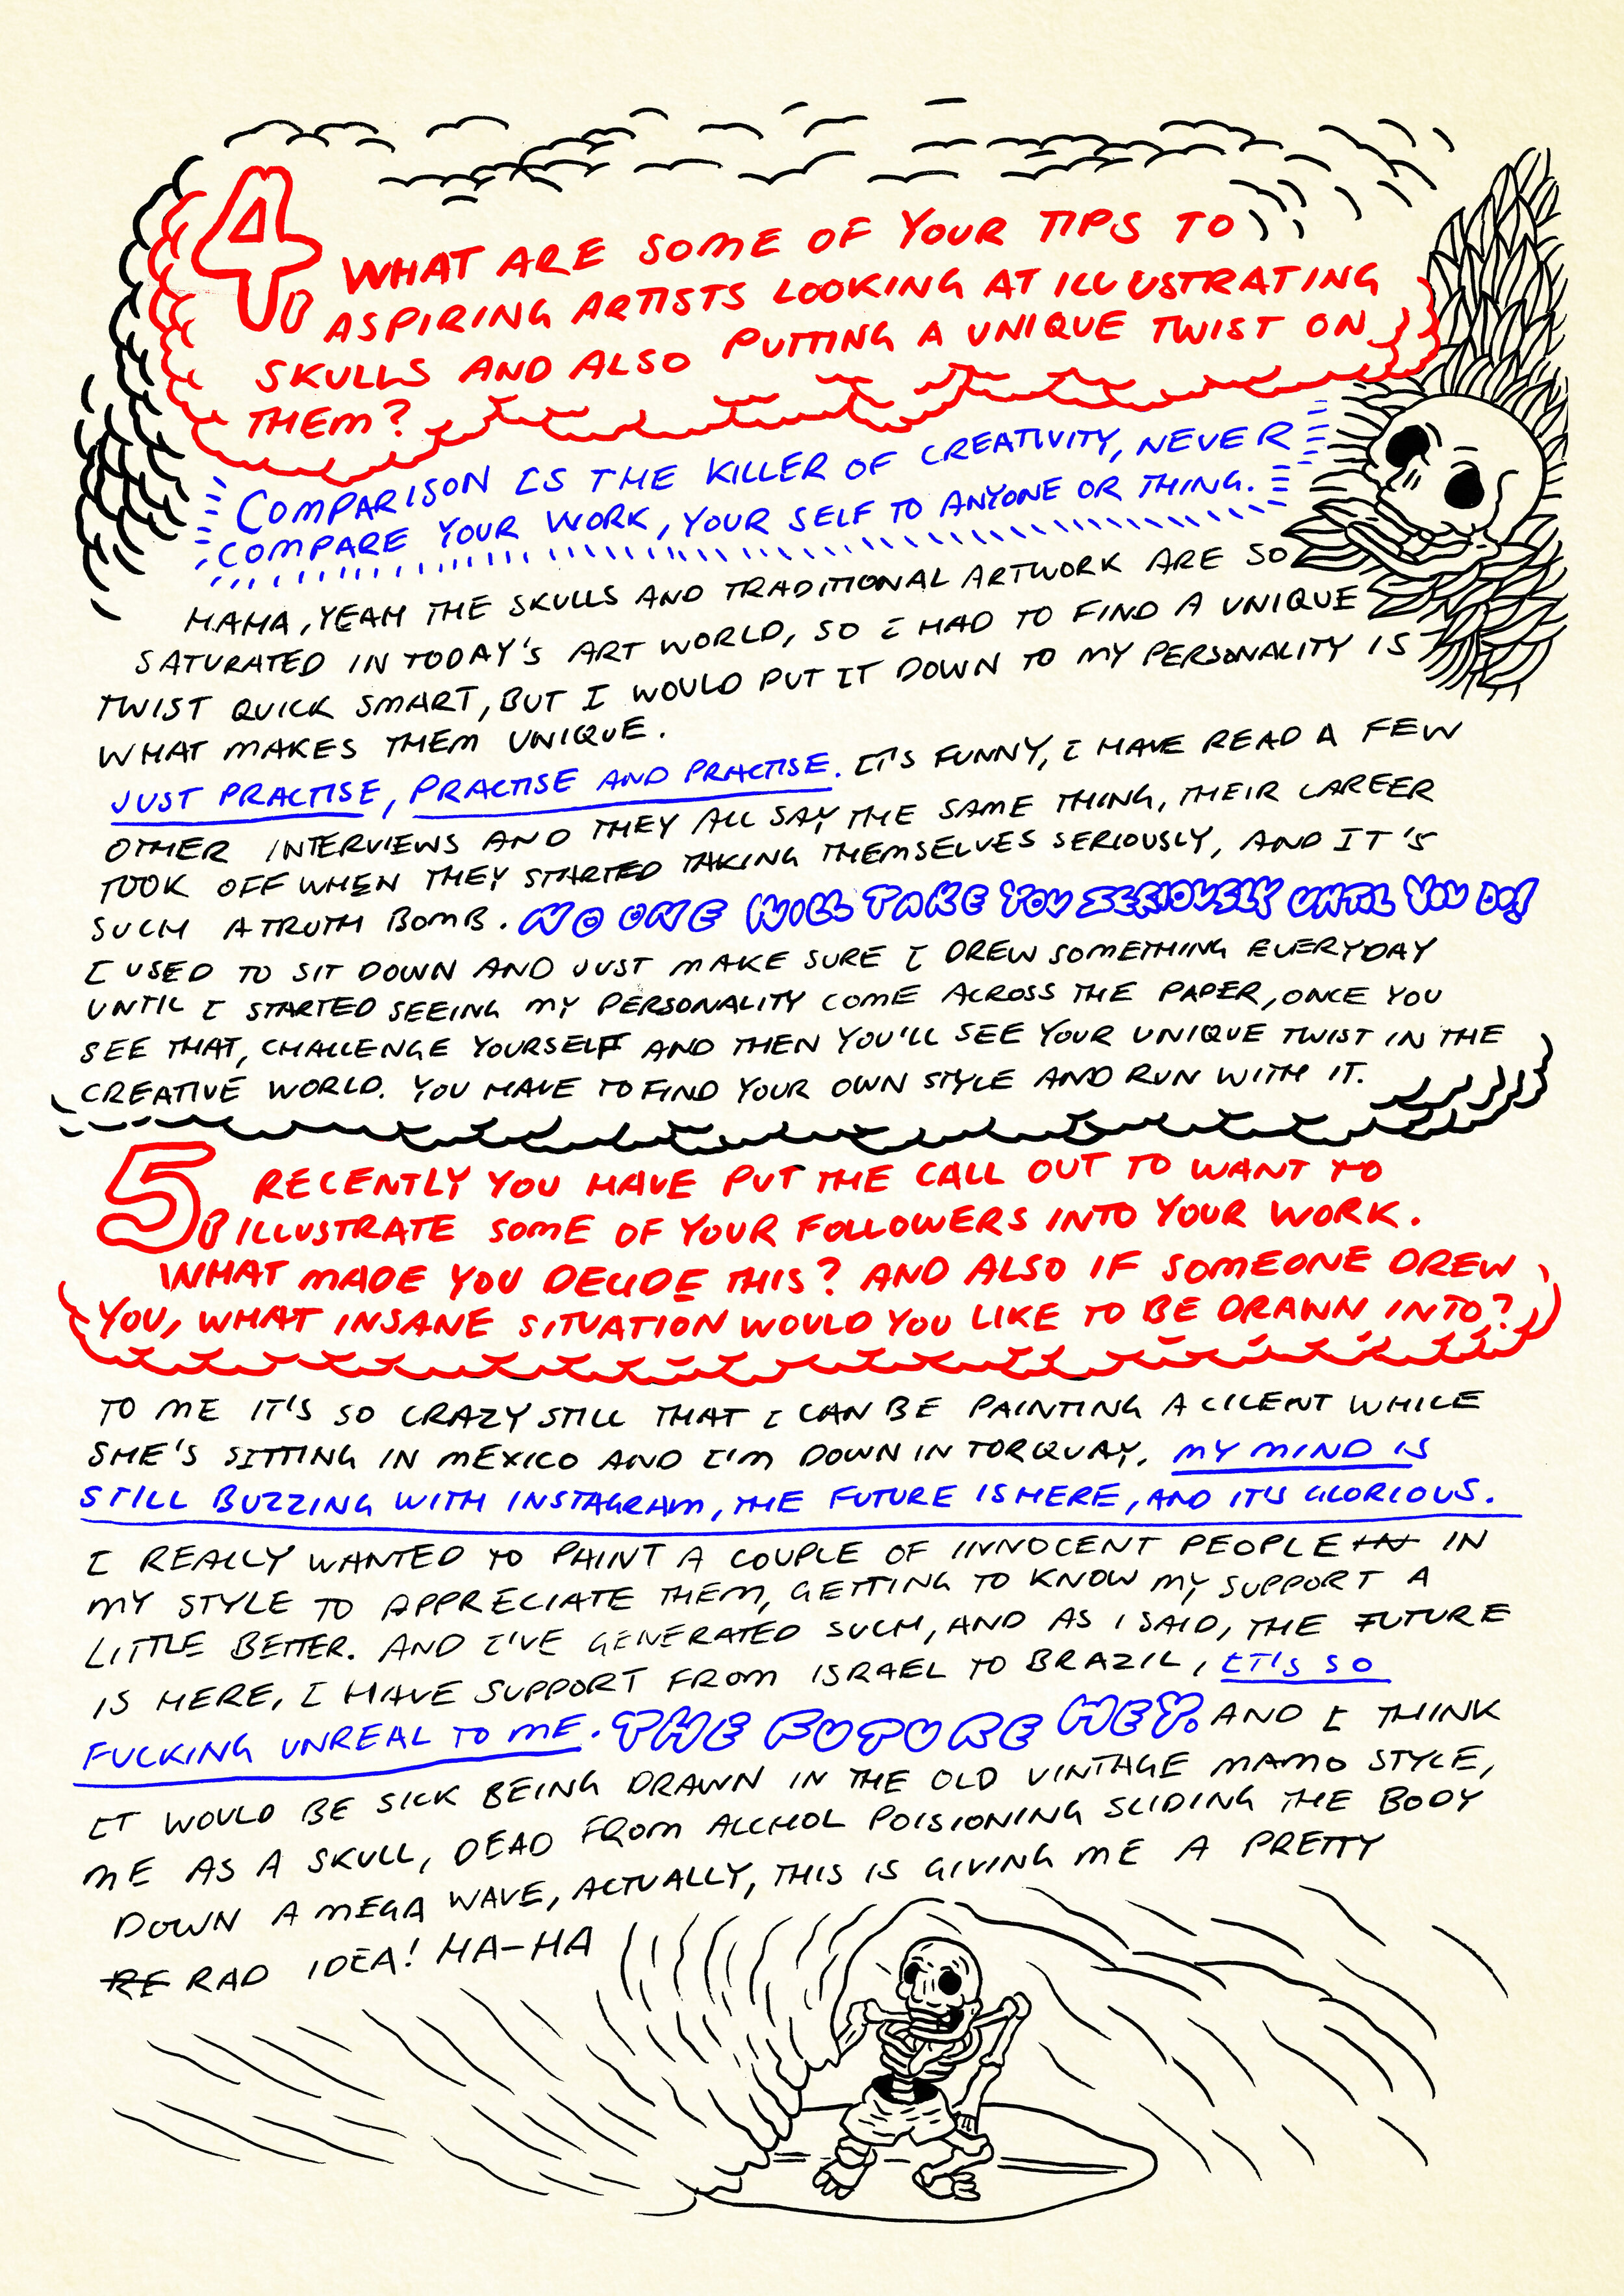 4. WHAT ARE SOME OF YOUR TIPS TO
ASPIRING ARTISTS LOOKING AT ILLUSTRATING
SKULLS AND ALSO PUTTING A UNIQUE TWIST ON
THEM?
COMPARISON IS THE KILLER OF CREATIVITY, NEVER
COMPARE YOUR WORK, YOUR SELF TO ANYONE OR THING.
HAHA, YEAH THE SKULLS AND TRADITIONAL ARTWORK ARE SO
SATURATED IN TODAY'S ART WORLD, SO I HAD TO FIND A UNIQUE
TWIST QUICK SMART, BUT I WOULD PUT IT DOWN TO MY PERSONALITY IS
WHAT MAKES THEM UNIQUE.
JUST PRACTISE, PRACTISE AND PRACTISE. IT'S FUNNY, I HAVE READ A FEW
OTHER INTERVIEWS AND THEY ALL SAY THE SAME THING, THEIR CAREER
TOOK OFF WHEN THEY STARTED TAKING THEMSELVES SERIOUSLY, AND IT'S
SUCH A TRUTH BOMB. NO ONE WILL TAKE YOU SERIOUSLY UNTIL YOU DO!
I USED TO SIT DOWN AND JUST MAKE SURE I DREW SOMETHING EVERYDAY
UNTIL I STARTED SEEING MY PERSONALITY COME ACROSS THE PAPER, ONCE YOU
SEE THAT, CHALLENGE YOURSELF AND THEN YOU'LL SEE YOUR UNIQUE TWIST IN THE
CREATIVE WORLD. YOU HAVE TO FIND YOUR OWN STYLE AND RUN WITH IT.
5. RECENTLY YOU HAVE PUT THE CALL OUT TO WANT TO
ILLUSTRATE SOME OF YOUR FOLLOWERS INTO YOUR WORK.
WHAT MADE YOU DECIDE THIS? AND ALSO IF SOMEONE DREW
YOU, WHAT INSANE SITUATION WOULD YOU LIKE TO BE DRAWN INTO?
TO ME IT'S SO CRAZY STILL THAT I CAN BE PAINTING A CILENT WHILE
SHE'S SITTING IN MEXICO AND I'M DOWN IN TORQUAY. MY MIND IS
STILL BUZZING WITH INSTAGRAM, THE FUTURE IS HERE, AND IT'S GLORIOUS.
I REALLY WANTED TO PAINT A COUPLE OF INNOCENT PEOPLE IN IN
MY STYLE TO APPRECIATE THEM, GETTING TO KNOW MY SUPPORT A
LITTLE BETTER. AND I'VE GENERATED SUCH, AND AS I SAID, THE FUTURE
IS HERE, I HAVE SUPPORT FROM ISRAEL TO BRAZIL, IT'S SO
FUCKING UNREAL TO ME. THE FUTURE HEY. AND I THINK
IT WOULD BE SICK BEING DRAWN IN THE OLD VINTAGE MAMO STYLE,
ME AS A SKULL, DEAD FROM ALCHOL POISIONING SLIDING THE BODY
DOWN A MEGA WAVE, ACTUALLY, THIS IS GIVING ME A PRETTY
RE RAD IDEA! HA-HA